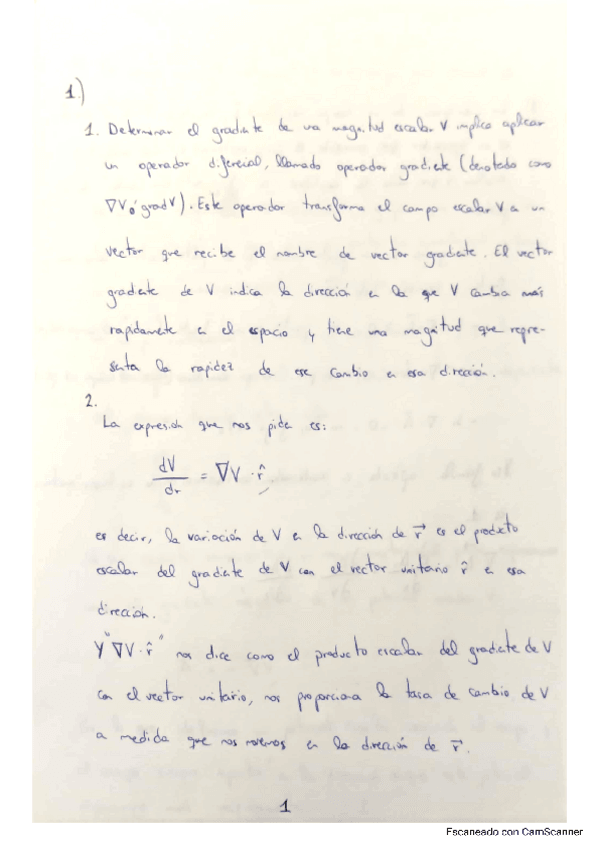 1.)
1. Determinar el gradiente de una magnitud escalar V implica aplicar
un operador diferencial, llamado operador gradiente (denotado como
∇V ó gradV). Este operador transforma el campo escalar V a un
vector que recibe el nombre de vector gradiente. El vector
gradiente de V indica la dirección en la que V cambia más
rapidamente en el espacio y tiene una magnitud que repre-
senta la rapidez de ese cambio en esa dirección.
2.
La expresion que nos pide es:
dV/dr = ∇V · r̂
es decir, la variación de V en la dirección de r⃗ es el producto
escalar del gradiente de V con el vector unitario r̂ en esa
dirección.
Y "∇V · r̂" nos dice como el producto escalar del gradiente de V
con el vector unitario, nos proporciona la tasa de cambio de V
a medida que nos movemos en la dirección de r⃗.
1
Escaneado con CamScanner